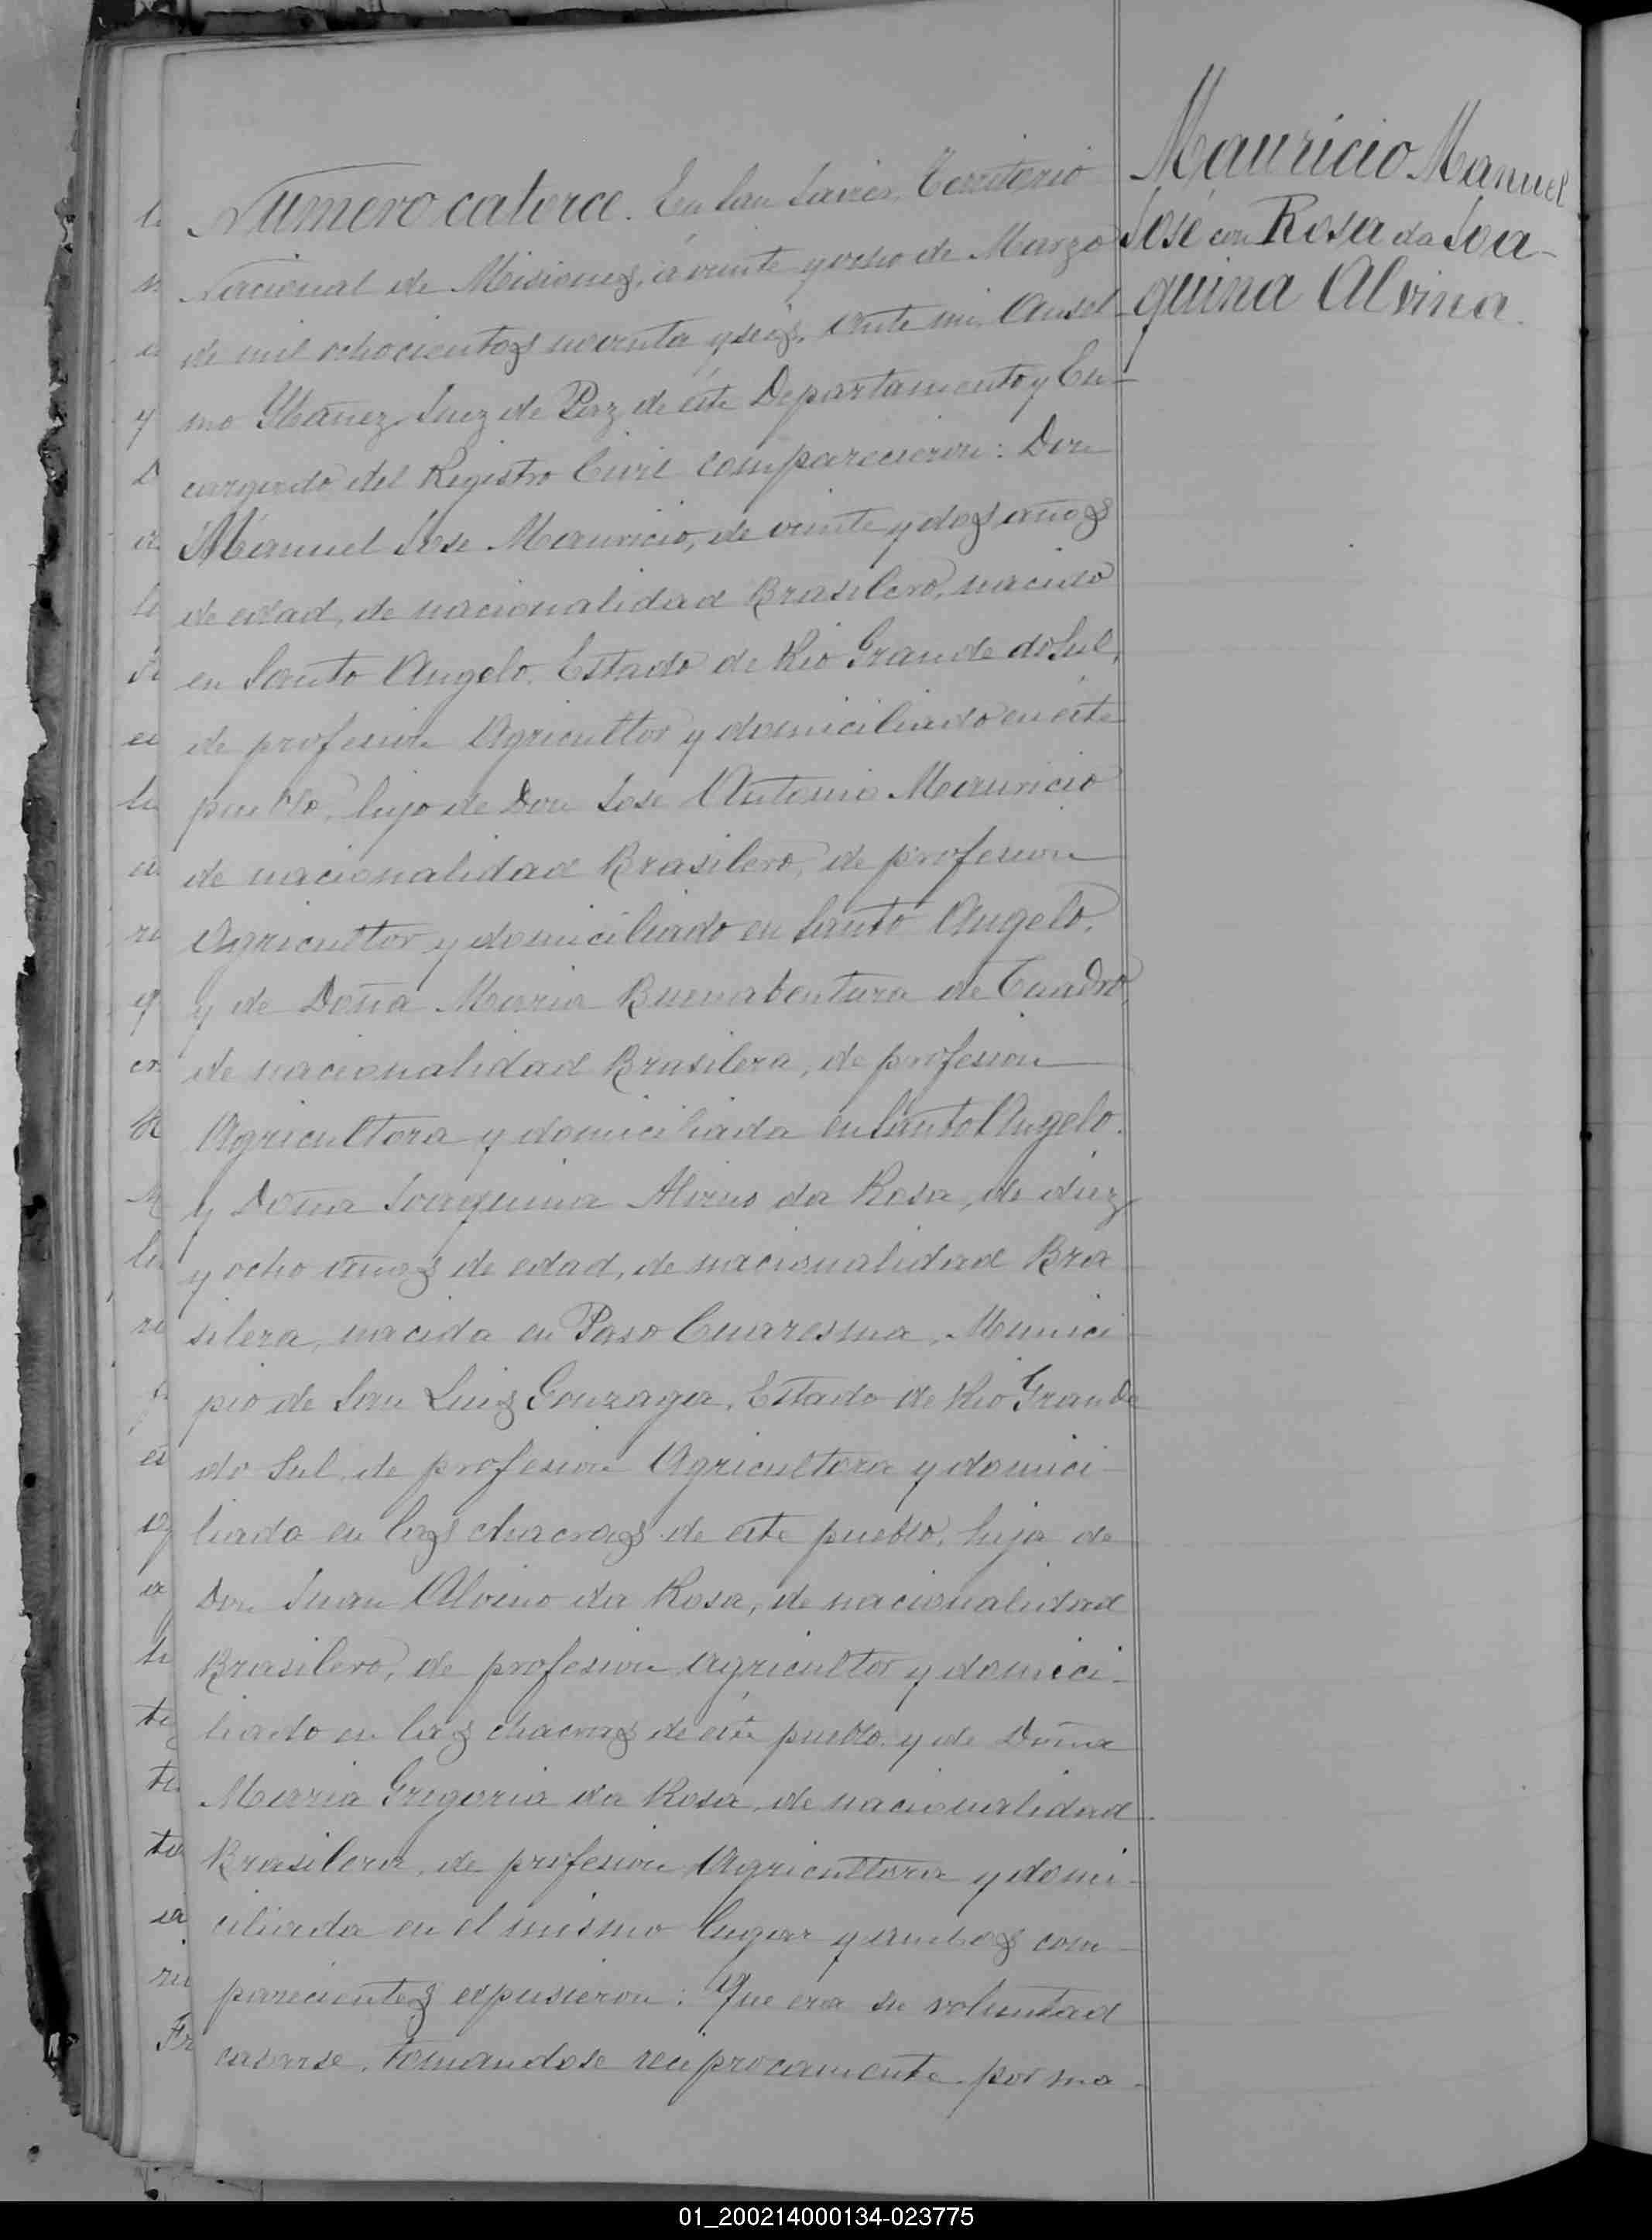 Mauricio Manuel
José con Rosa da Joa-
quina Alvina.
Numero catorce. En San Javier, Territorio
Nacional de Misiones, á veinte y ocho de Marzo
de mil ochocientos noventa y seis, ante mi, Ansel-
mo Ybañez, Juez de Paz de éste Departamento y En-
cargado del Registro Civil comparecieron: Don
Manuel José Mauricio, de veinte y dos años
de edad, de nacionalidad Brasilero, nacido
en Santo Angelo, Estado de Rio Grande do Sul,
de profesion Agricultor y domiciliado en éste
pueblo, hijo de Don José Antonio Mauricio
de nacionalidad Brasilero, de profesion
Agricultor y domiciliado en Santo Angelo,
y de Doña Maria Buenabentura de Cuadro,
de nacionalidad Brasilera, de profesion
Agricultora y domiciliada en Santo Angelo.
y Doña Joaquina Alvino da Rosa, de diez
y ocho años de edad, de nacionalidad Bra
silera, nacida en Paso Cuaresma, Munici-
pio de San Luis Gonzaga, Estado de Rio Grande
do Sul, de profesion Agricultora y domici-
liada en las chacras de éste pueblo, hija de
Don Juan Alvino da Rosa, de nacionalidad
Brasilero, de profesion Agricultor y domici-
liado en las chacras de éste pueblo y de Doña
Maria Gregoria da Rosa, de nacionalidad
Brasilera, de profesion Agricultora y domi-
ciliada en el mismo lugar y ambos com-
parecientes expusieron: Que era su voluntad
casarse, tomandose reciprocamente por ma-
01_200214000134-023775